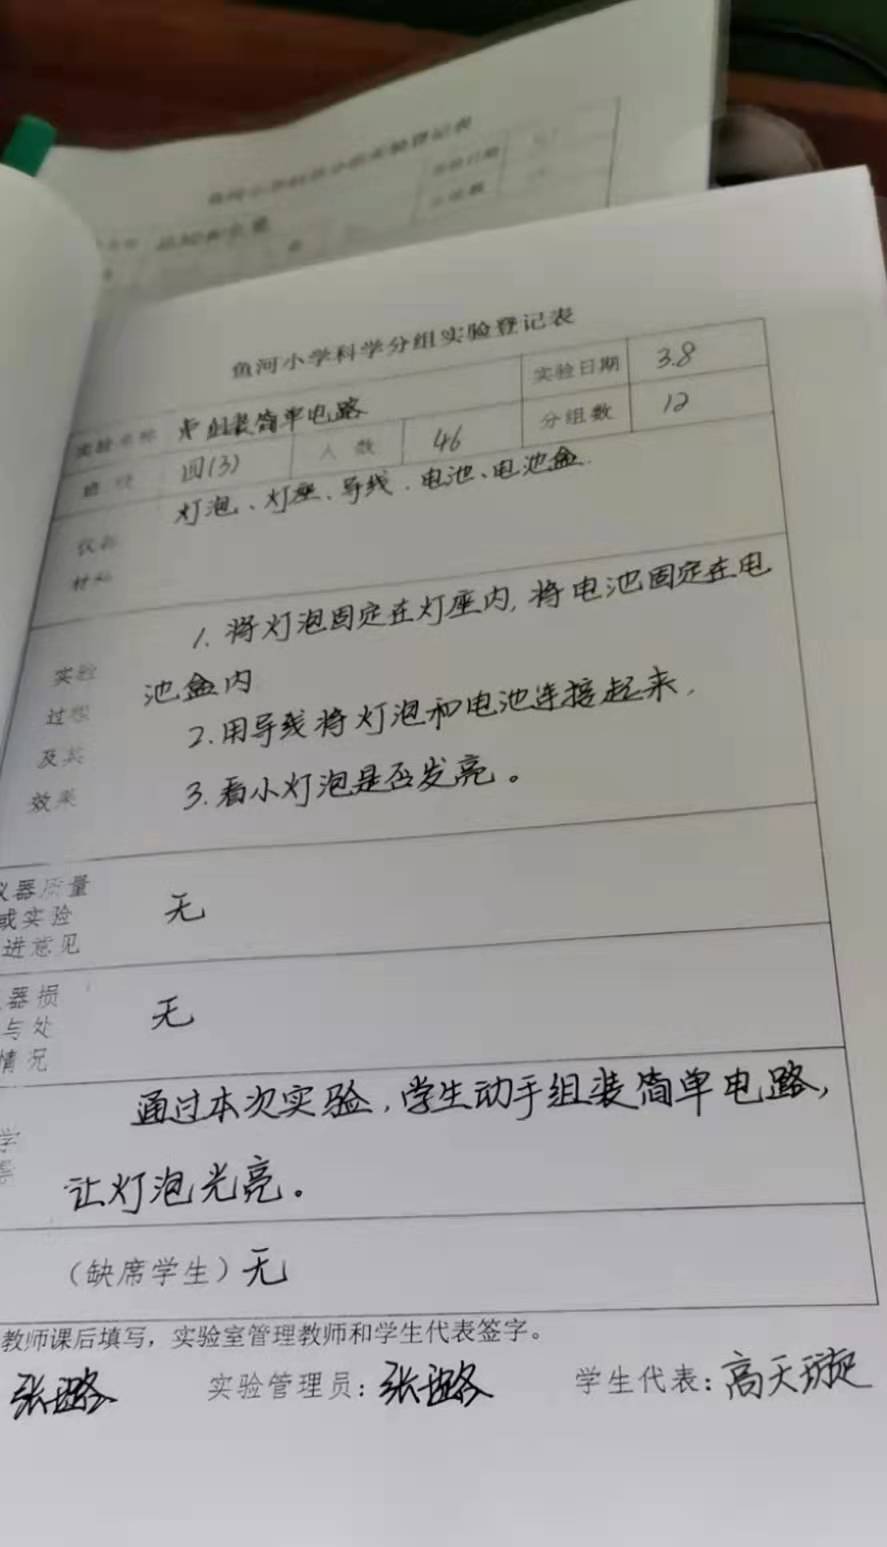 鱼河小学科学分组实验登记表
实验名称 组装简单电路 实验日期 3.8
班级 四(3) 人数 46 分组数 12
仪器 灯泡、灯座、导线、电池、电池盒.
材料
实验 1. 将灯泡固定在灯座内, 将电池固定在电
过程 池盒内
及其 2. 用导线将灯泡和电池连接起来,
效果 3. 看小灯泡是否发亮。
仪器质量
或实验 无
进意见
器损
与处 无
情况
通过本次实验,学生动手组装简单电路,
学
让灯泡光亮。
(缺席学生)无
教师课后填写,实验室管理教师和学生代表签字。
张璐 实验管理员:张璐 学生代表:高天璇